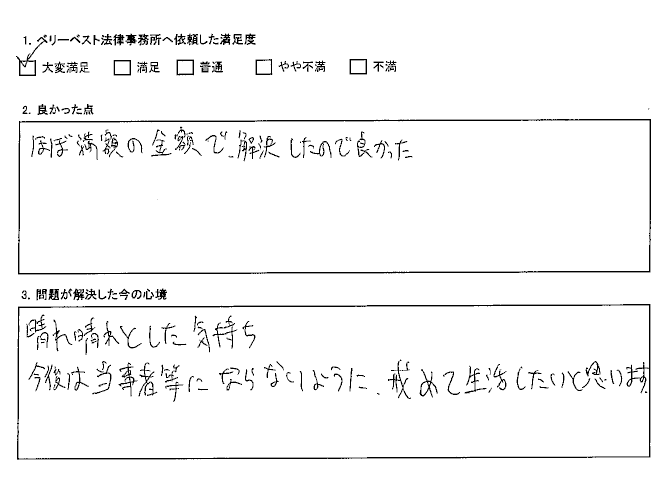 1. ベリーベスト法律事務所へ依頼した満足度
大変満足 満足 普通 やや不満 不満
2. 良かった点
ほぼ満額の金額で、解決したので良かった
3. 問題が解決した今の心境
晴れ晴れとした気持ち
今後は当事者等にならないように、戒めて生活したいと思います